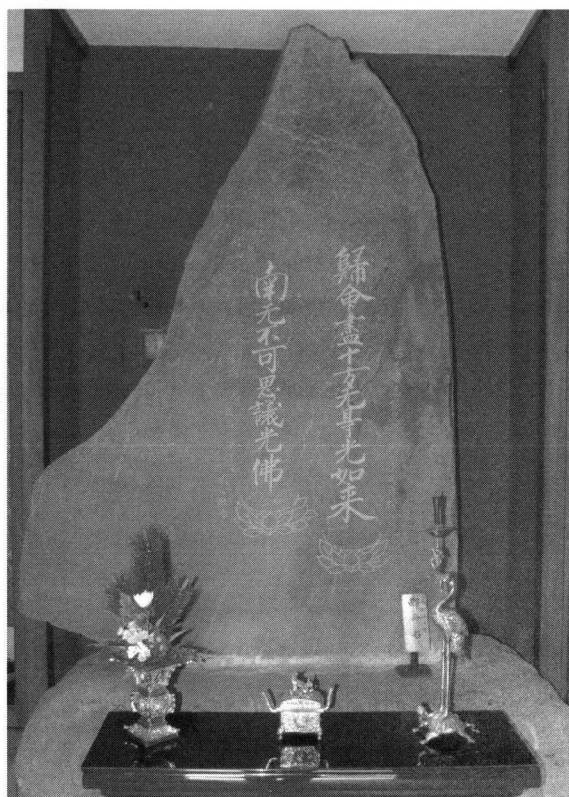 歸命盡十方无㝵光如来
南无不可思議光佛